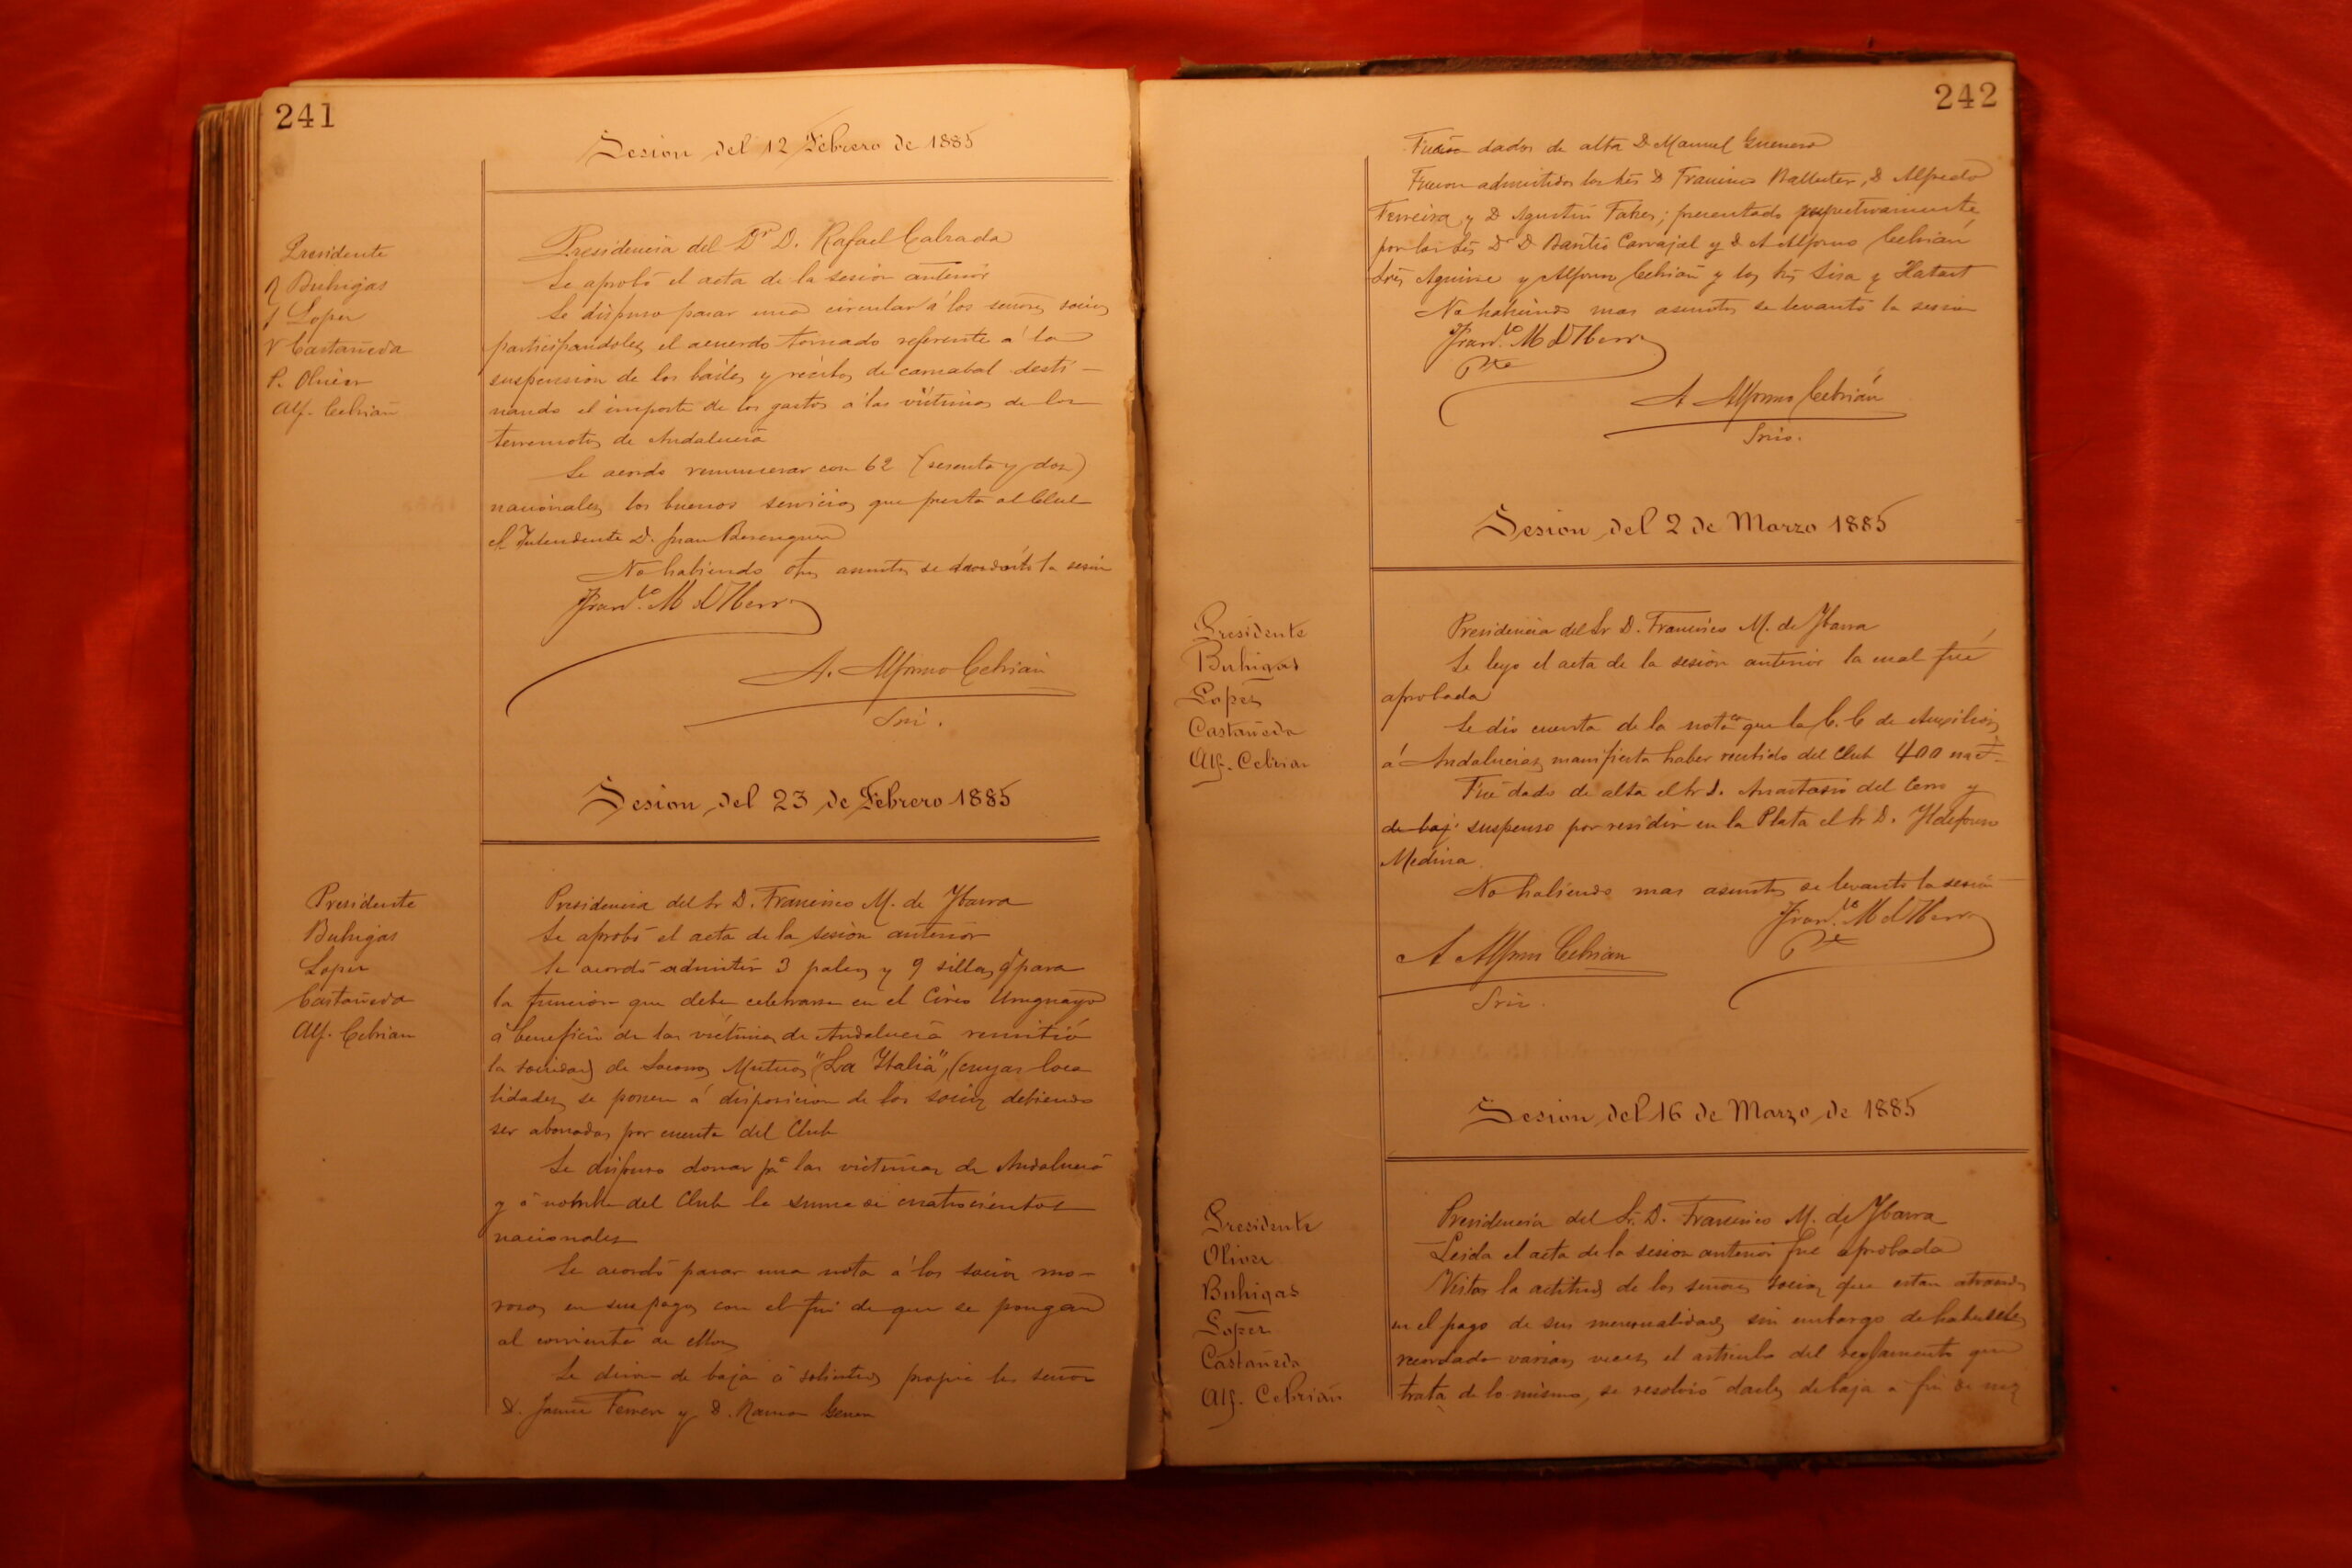 241
Sesion del 12 Febrero de 1885
Presidente
Buhigas
Lopez
Castañeda
P. Oliver
Alf. Cebrian
Presidencia del Dr D. Rafael Calzada
Se aprobó el acta de la sesion anterior
Se dispuso pasar una circular á los señores socios
participandoles el acuerdo tomado referente á la
suspension de los bailes y recibos de carnabal desti-
nando el importe de los gastos á las victimas de los
terremotos de Andalucia
Se acordo remunerar con 62 (sesenta y dos)
nacionales los buenos servicios que presta al Club
el Intendente D. Juan Berenguer
No habiendo otros asuntos se levantó la sesion
Franco. M de Ibarra
A. Alfonso Cebrian
Srio.
Sesion del 23 de Febrero 1885
Presidente
Buhigas
Lopez
Castañeda
Alf. Cebrian
Presidencia del Sr D. Francisco M. de Ybarra
Se aprobó el acta de la sesion anterior
Se acordó admitir 3 palcos y 9 sillas para
la funcion que debe celebrarse en el Circo Uruguayo
á beneficio de las victimas de Andalucia remitió
la sociedad de Socorros Mutuos "La Ytalia", (cuyas loca
lidades se ponen á disposicion de los socios debiendo
ser abonadas por cuenta del Club
Se dispuso donar pa las victimas de Andalucia
y á nombre del Club la suma de cuatrocientos
nacionales
Se acordó pasar una nota á los socios mo-
rosos en sus pagos con el fin de que se pongan
al corriente de ellos
Se dieron de baja á solicitud propia los señores
D. Jaime Ferrer y D. Ramon
242
Fueron dados de alta D Manuel Guerrero
Fueron admitidos los Srs D Francisco Ballester, D Alfredo
Ferreira y D Agustin; presentado respectivamente
por los Srs Dr D Basilio Carvajal y D A Alfonso Cebrian
Srs Aguirre y Alfonso Cebrian y los Srs Sisa y
No habiendo mas asuntos se levantó la sesion
Franco. M de Ibarra
Pte
A Alfonso Cebrián
Srio.
Sesion del 2 de Marzo 1885
Presidente
Buhigas
Lopez
Castañeda
Alf. Cebrian
Presidencia del Sr D. Francisco M. de Ybarra
Se leyo el acta de la sesion anterior la cual fué
aprobada
Se dio cuenta de la nota en que la C. C de Auxilios
á Andalucia, manifiesta haber recibido del Club 400 nac.
Fué dado de alta el Sr D. Anastasio del Cerro y
de baj. suspenso por residir en la Plata el Sr D. Yldefonso
Medina
No habiendo mas asuntos se levantó la sesion
Franco. M de Ibarra
Pte
A Alfonso Cebrian
Srio.
Sesion del 16 de Marzo de 1885
Presidente
Oliver
Buhigas
Lopez
Castañeda
Alf. Cebrián
Presidencia del Sr. D. Francisco M. de Ybarra
Leida el acta de la sesion anterior fué aprobada
Vista la actitud de los señores socios que estan atrasados
en el pago de sus mensualidades sin embargo de haberseles
recordado varias veces el articulo del reglamento que
trata de lo mismo, se resolvió darles de baja á fin de